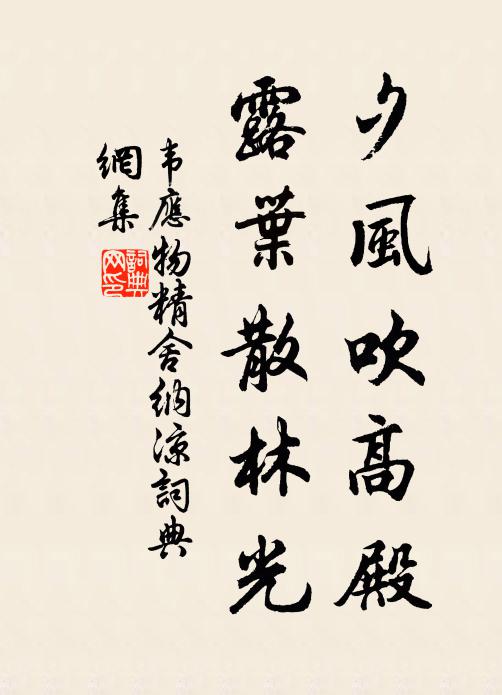 夕風吹高殿
露葉散林光
韦應物精舍纳凉詞典
網集
詞典
网印